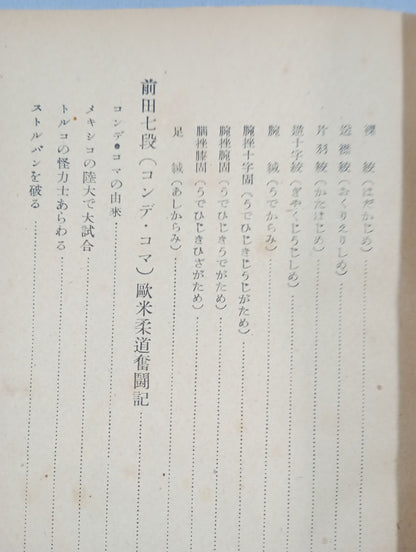 裸絞(はだかじめ)
送襟絞(おくりえりしめ)
片羽絞(かたはじめ)
逆十字絞(ぎやくじうじしめ)
腕緘(うでからみ)
腕挫十字固(うでひじきじうじがため)
腕挫腕固(うでひじきうでがため)
腕挫膝固(うでひじきひざがため)
足緘(あしからみ)
前田七段(コンデ・コマ)歐米柔道奮闘記
コンデ・コマの由来
メキシコの陸大で大試合
トルコの怪力士あらわる
ストルバンを破る